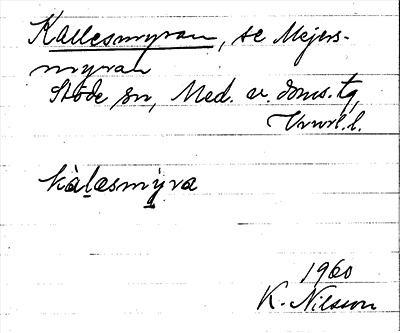 Kallesmyran, se Mejers-
myran
Stöde sn, Med. v. doms. tg,
kàlasmy̱ra
1960
K. Nilsson